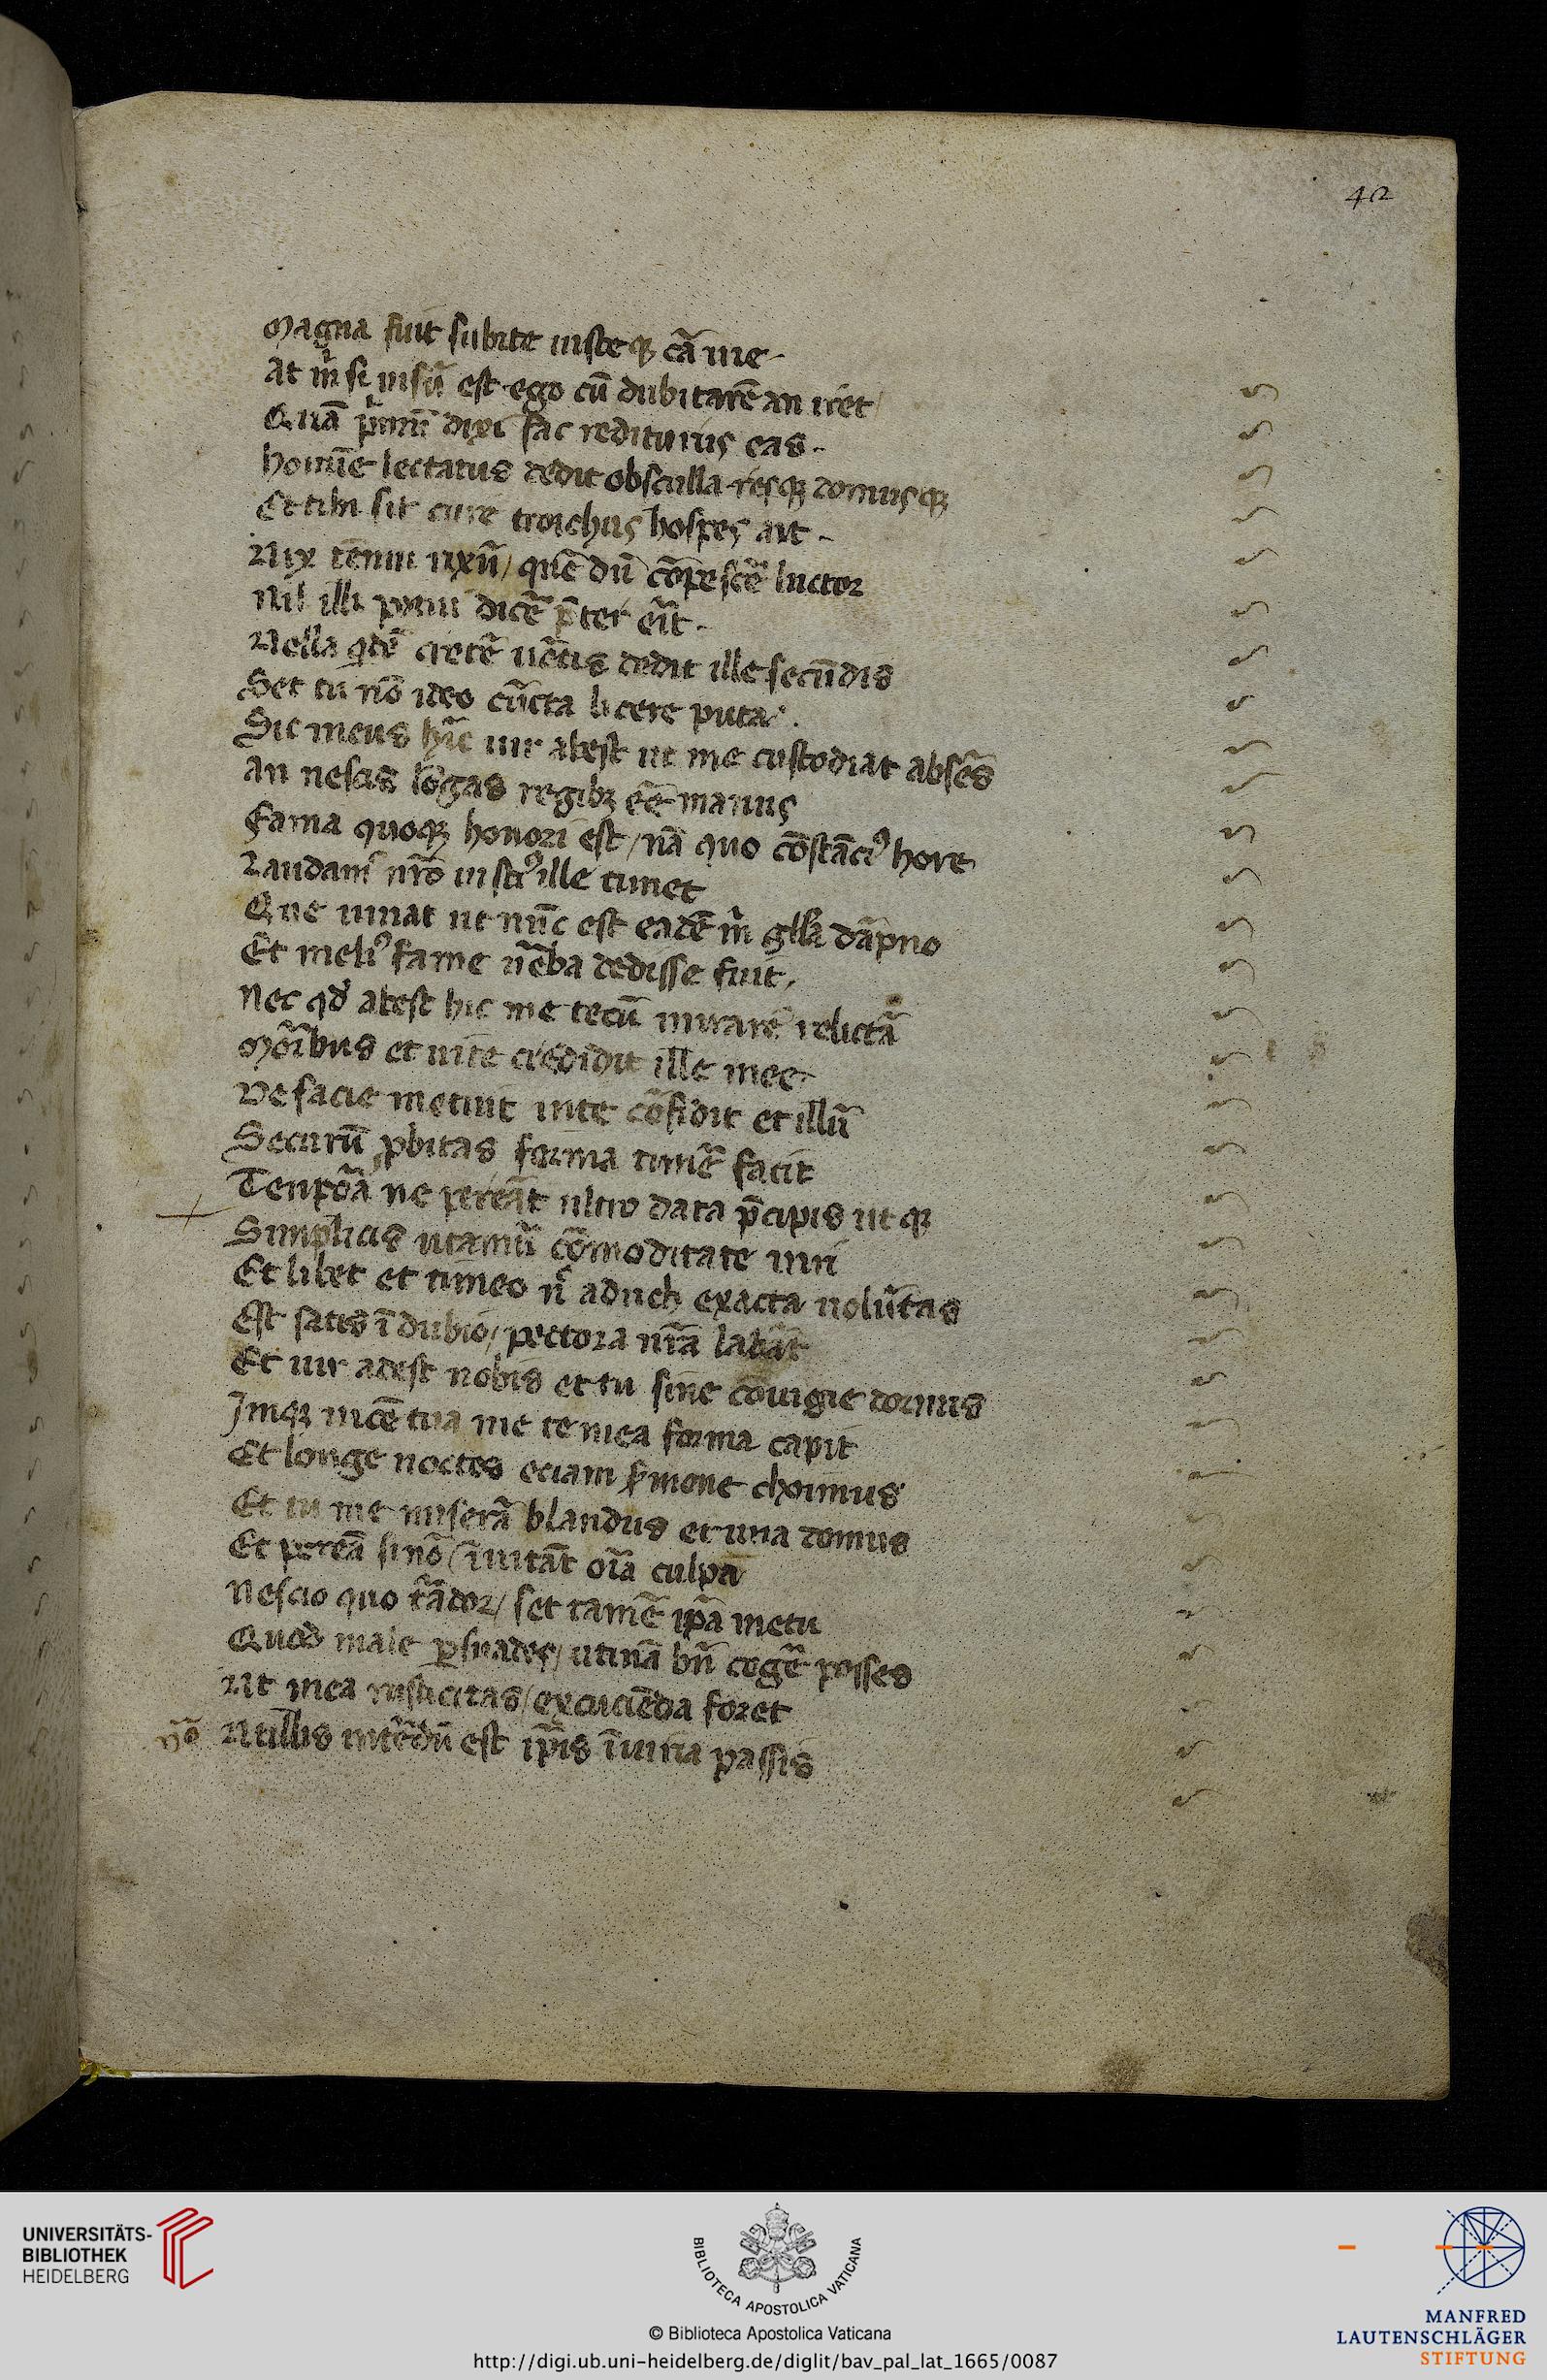 42
Magna fuit subite iusteqꝫ cã uie
At m̃ si uisũ est ego cũ dubitarẽ an iret
Quã p̃mũ dixi fac rediturus eas
homĩe lectatus dedit obsculla resqꝫ domusqꝫ
Et tibi sit cure troichus hospes ait
Vix tenui rixũ / quẽ dũ cõpescẽ luctor
Nil illi potui dicẽ p̃ter erĩt
Vella qͥdẽ cretẽ uẽtis dedit ille secũdis
Set tu nõ ideo cũcta licere puta
Sic meus hĩc uir abest ut me custodiat absẽs
An nescis lõgas regibꝫ eẽ manus
Fama quoqꝫ honori est / nã quo cõstãciꝰ hore
Laudamͬ nr̃o iustiꝰ ille timet
Que iuuat ut nũc est eadẽ m̃ gl̃a dãpno
Et meliꝰ fame ũeba dedisse fuit
Nec qđ abest hic me tecũ mirare relictã
Morĩbus et uite credidit ille mee
De facie metuit uite cõfidit et illũ
Securũ ꝓbitas forma timẽ facit
Tenpõa ne pereãt ultro data p̃cipis ut qꝫ
Simplicis utamũ cõmoditate uiri
Et libet et timeo ñ adueh exacta uolũtas
Est satis ĩ dubio / pectora nr̃a labãt
Et uir abest nobis et tu sine cõiuge dormis
Jnqꝫ uicẽ tua me te mea forma capit
Et longe noctes eciam ẜmone choimus
Et tu me miserã blandus et una domus
Et pereã si nõ / ĩuitãt oĩa culpã
Nescio quo tãdor / set tamẽ ip̃a metu
Quod male ꝑsuades / utinã bñ cogẽ posses
Ut mea rusticitas / excuciẽda foret
Vtillis int̃dũ est ip̃is ĩiuria passis
UNIVERSITÄTS-
BIBLIOTHEK
HEIDELBERG
BIBLIOTECA APOSTOLICA VATICANA
© Biblioteca Apostolica Vaticana
http://digi.ub.uni-heidelberg.de/diglit/bav_pal_lat_1665/0087
MANFRED
LAUTENSCHLÄGER
STIFTUNG